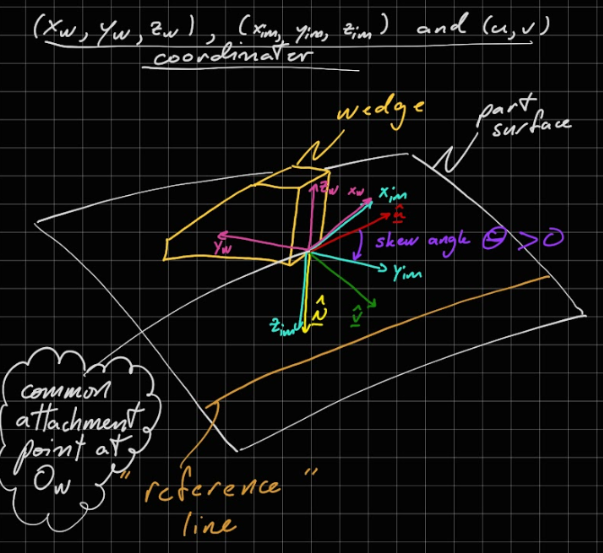 (xw, yw, zw), (xim, yim, zim) and (u,v)
coordinates
wedge
part
surface
zw
xw
xim
û
yw
skew angle Θ > 0
yim
zim
N̂
v̂
common
attachment
point at
Ow
"reference"
line